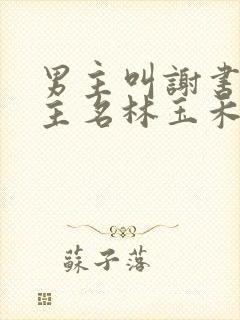 男主叫謝書
主名林玉禾
蘇子落